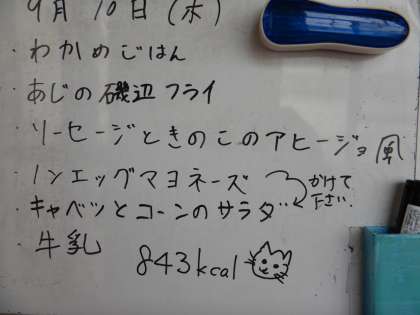 9月10日(木)
・わかめごはん
・あじの磯辺フライ
・ソーセージときのこのアヒージョ風
・ノンエッグマヨネーズ
かけて下さい
・キャベツとコーンのサラダ
・牛乳
843kcal